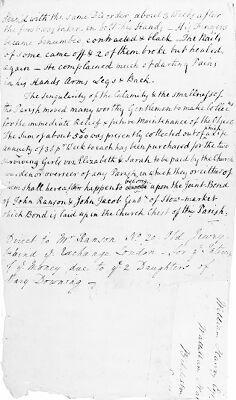 seized with the same Disorder about 3 Weeks after
the first was taken in both the Hands — His Fingers
became benumbed contracted & black. The Nails
of some came off & 2 of them broke but healed
again — He complained much of darting Pains
in his Hands Arms Legs & Back.
The singularity of the Calamity & the smallness of
the Parish moved many worthy Gentlemen to make
for the immediate Relief & future Maintenance of the Objects
The Sum of about 500 was presently collected out of which
annuity of 3s p Week to each has been purchased for the two
surviving Girls viz Elizabeth & Sarah to be paid by the Church
warden or overseer of any Parish, in which they or either of
them shall hereafter happen to belong upon the Joint-Bond
of John Ranson & John Jacob Gent of Stow-market
which Bond is laid up in the Church Chest of this Parish.
Direct to Mr Ranson No 20 Old Jewry
behind ye Exchange London — for ye
of ye Money due to ye 2 Daughters of
Mary Downing —
William